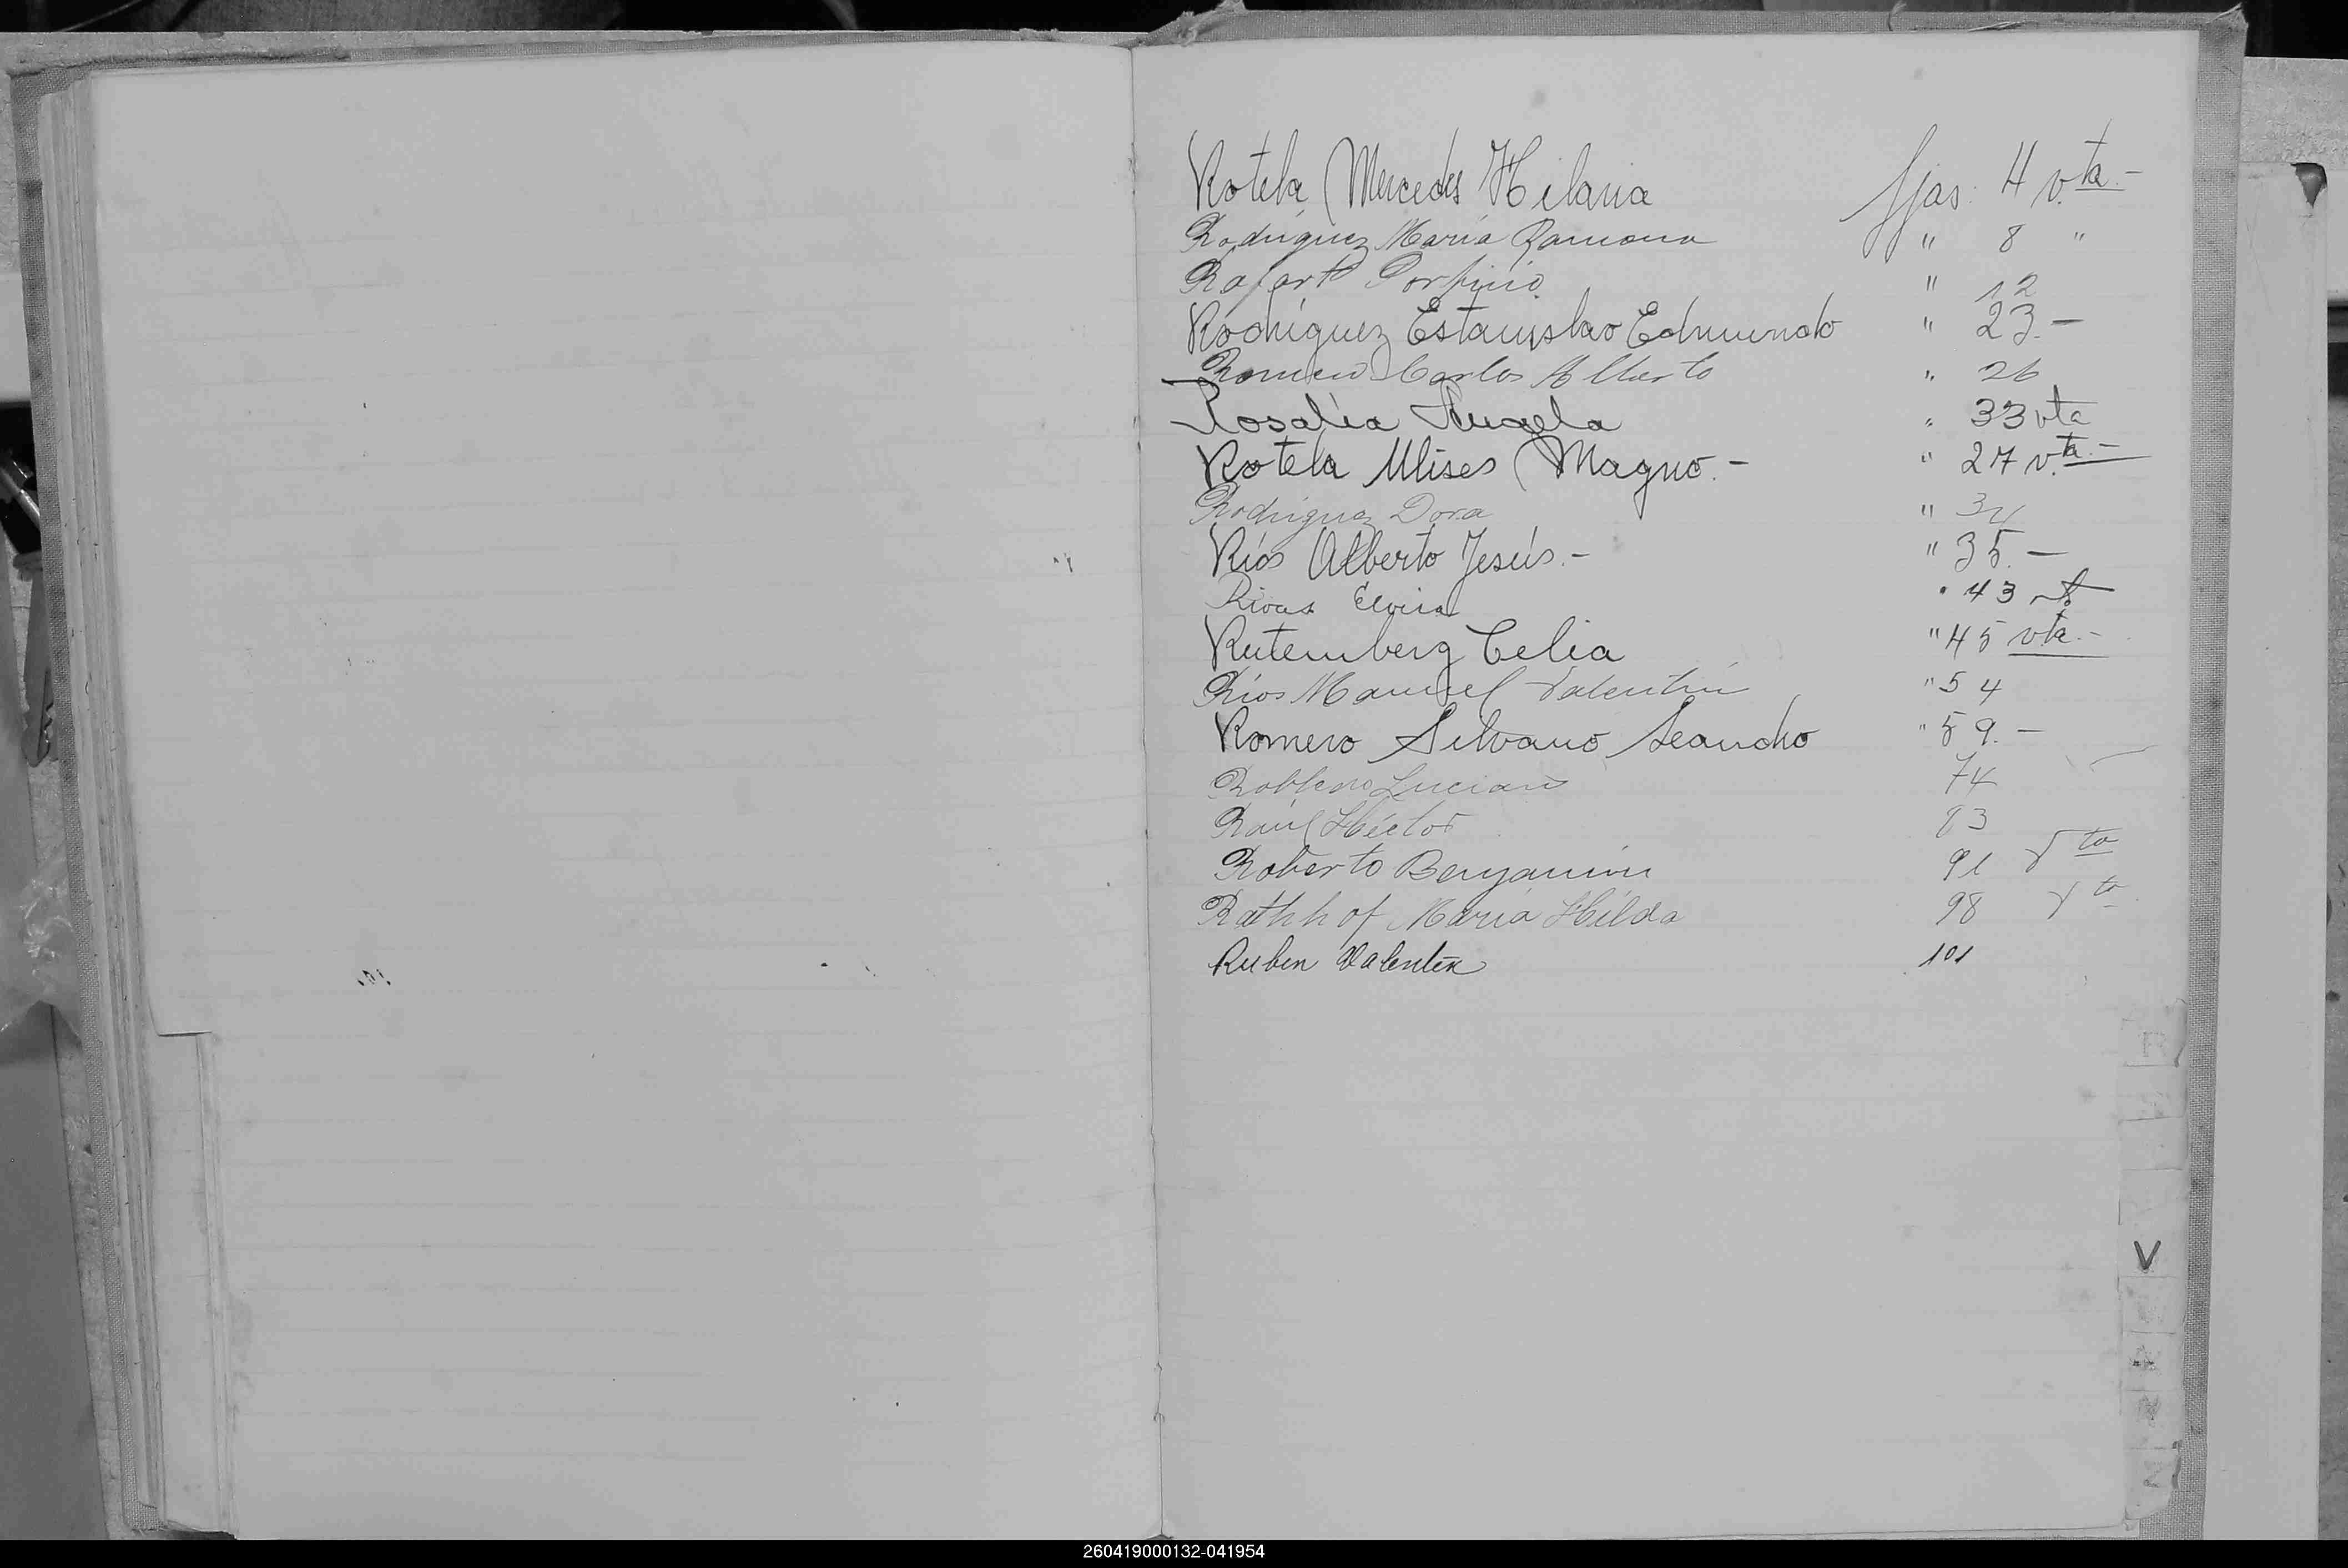 Rotela Mercedes Hilaria fjas. 4 v.ta.-
Rodriguez María Ramona " 8 "
Porfirio " 12
Rodríguez Estanislao Edmundo " 23.-
Carlos Alberto " 26
Rosalía Angela " 33 vta
Rotela Ulises Magno.- " 27 v.ta.-
Rodriguez Dora " 34
Ríos Alberto Jesús.- " 35.-
Rivas Elvira " 43 vta
Rutemberg Celia " 45 vta.-
Ríos Manuel Valentín " 54
Romero Silvano Leandro " 59.-
Robledo Luciano 74
Raúl Héctor 83
Roberto Benjamín 91 Vta
Rathhof María Hilda 98 Vta
Ruben Valentín 101
R
V
260419000132-041954